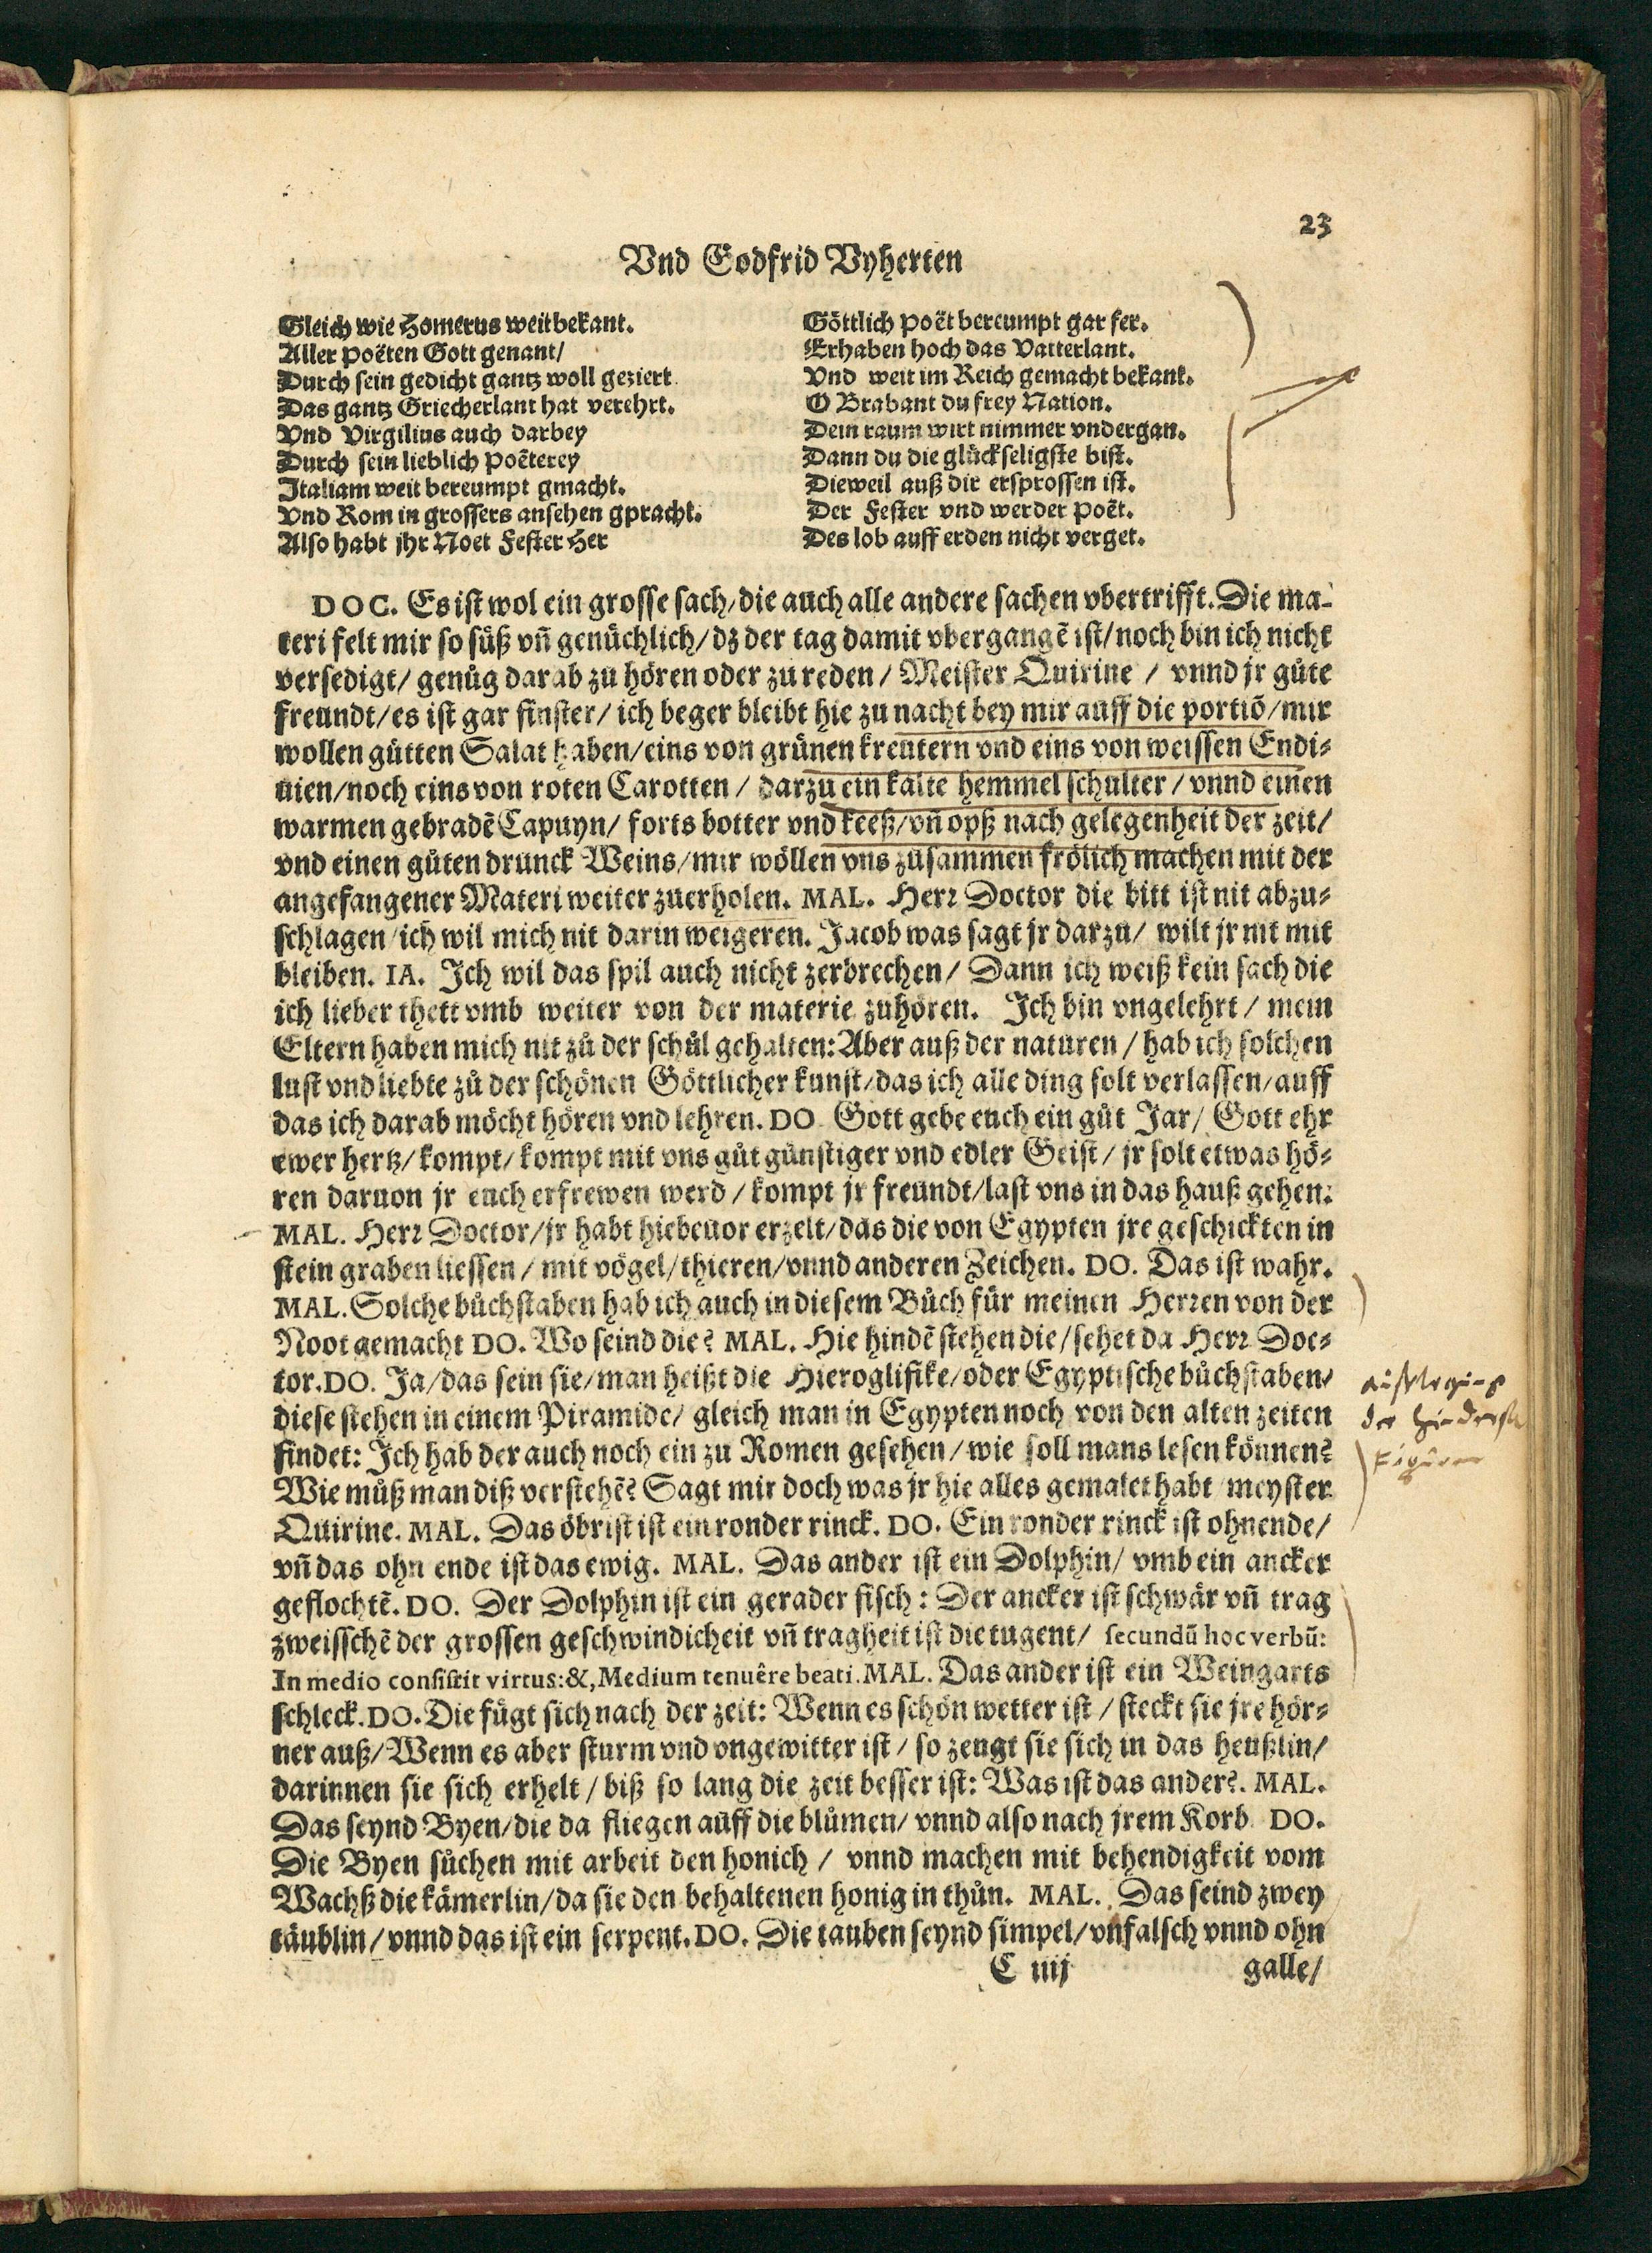 23
Vnd Godfrid Vyherten
Gleich wie Homerus weitbekant.
Aller poëten Gott genant/
Durch sein gedicht gantz woll geziert
Das gantz Griecherlant hat verehrt.
Vnd Virgilius auch darbey
Durch sein lieblich poëterey
Italiam weit bereumpt gmacht.
Vnd Rom in grossers ansehen gpracht.
Also habt jhr Noet Fester Her
Göttlich poët bereumpt gar fer.
Erhaben hoch das Vatterlant.
Vnd weit im Reich gemacht bekant.
O Brabant du frey Nation.
Dein raum wirt nimmer vndergan.
Dann du die glückseligste bist.
Dieweil auß dir ersprossen ist.
Der Fester vnd werder poët.
Des lob auff erden nicht verget.
DOC. Es ist wol ein grosse sach/die auch alle andere sachen vbertrifft. Die ma-
teri felt mir so süß vñ genüchlich/dz der tag damit vbergangē ist/noch bin ich nicht
versedigt/ genůg darab zu hören oder zu reden/ Meister Quirine / vnnd jr gůte
freundt/es ist gar finster/ ich beger bleibt hie zu nacht bey mir auff die portiō/mir
wollen gůtten Salat haben/eins von grünen kreutern vnd eins von weissen Endi-
uien/noch eins von roten Carotten / darzu ein kalte hemmel schulter / vnnd einen
warmen gebradē Capuyn/ forts botter vnd keeß/vñ opß nach gelegenheit der zeit/
vnd einen gůten drunck Weins/mir wöllen vns zusammen frölich machen mit der
angefangener Materi weiter zuerholen. MAL. Herr Doctor die bitt ist nit abzu-
schlagen/ich wil mich nit darin weigeren. Jacob was sagt jr darzu/ wilt jr nit mit
bleiben. IA. Ich wil das spil auch nicht zerbrechen/ Dann ich weiß kein sach die
ich lieber thett vmb weiter von der materie zuhören. Ich bin vngelehrt / mein
Eltern haben mich nit zů der schůl gehalten: Aber auß der naturen / hab ich solchen
lust vnd liebte zů der schönen Göttlicher kunst/das ich alle ding solt verlassen/auff
das ich darab möcht hören vnd lehren. DO Gott gebe euch ein gůt Jar/ Gott ehr
ewer hertz/kompt/kompt mit vns gůt günstiger vnd edler Geist/ jr solt etwas hö-
ren daruon jr euch erfrewen werd / kompt jr freundt/last vns in das hauß gehen:
MAL. Herr Doctor/jr habt hiebeuor erzelt/das die von Egypten jre geschickten in
stein graben liessen / mit vögel/thieren/vnnd anderen Zeichen. DO. Das ist wahr.
MAL. Solche bůchstaben hab ich auch in diesem Bůch für meinen Herren von der
Noot gemacht DO. Wo seind die? MAL. Hie hindē stehen die/sehet da Herr Doc-
tor. DO. Ja/das sein sie/man heißt die Hieroglifike/oder Egyptische bůchstaben/
diese stehen in einem Piramide/ gleich man in Egypten noch von den alten zeiten
findet: Ich hab der auch noch ein zu Romen gesehen/wie soll mans lesen können?
Wie můß man diß verstehē? Sagt mir doch was jr hie alles gemalet habt meyster
Quirine. MAL. Das öbrist ist ein ronder rinck. DO. Ein ronder rinck ist ohn ende/
vñ das ohn ende ist das ewig. MAL. Das ander ist ein Dolphin/ vmb ein ancker
geflochtē. DO. Der Dolphin ist ein gerader fisch: Der ancker ist schwär vñ trag
zweisschē der grossen geschwindicheit vñ tragheit ist die tugent/ secundũ hoc verbũ:
In medio consistit virtus: &, Medium tenuêre beati. MAL. Das ander ist ein Weingarts
schleck. DO. Die fügt sich nach der zeit: Wenn es schön wetter ist / steckt sie jre hör-
ner auß/Wenn es aber sturm vnd vngewitter ist / so zeugt sie sich in das heußlin/
darinnen sie sich erhelt / biß so lang die zeit besser ist: Was ist das ander?. MAL.
Das seynd Byen/die da fliegen auff die blůmen/ vnnd also nach jrem Korb DO.
Die Byen sůchen mit arbeit den honich / vnnd machen mit behendigkeit vom
Wachß die kämerlin/da sie den behaltenen honig in thůn. MAL. Das seind zwey
täublin/vnnd das ist ein serpent. DO. Die tauben seynd simpel/vnfalsch vnnd ohn
C iiij galle/
außlegung
der
Figuren